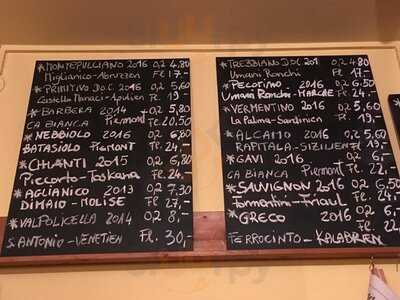 *MONTEPULCIANO 2016 0,2 4.80
Miglianico-Abruzzen Fl 17,-
*PRIMITIVO D.O.C. 2016 0,2 5.60
Castello Monaci-Apulien Fl. 19,-
*BARBERA 2014 5.80
CA BIANCA Piemont Fl. 20.50
*NEBBIOLO 2016 0,2 6,80
BATASIOLO PIEMONT Fl. 24,-
*CHIANTI 2015 0,2 6,80
Piccorto-Toskana Fl. 24.-
*AGLIANICO 2013 0,2 7.30
DIMAIO-MOLISE Fl. 27,-
*VALPOLICELLA 2014 0,2 8,-
S. ANTONIO-VENETIEN Fl. 30,-
*TREBBIANO D.O.C. 2016 0,2 4.80
Umani Ronchi Fl 17,-
*PECORINO 2016 0,2 6.50
Umani Ronchi-MARCHE Fl. 24.-
*VERMENTINO 2016 0,2 5,60
La Palma-Sardinien Fl. 19,-
*ALCAMO 2016 0,2 5,60
RAPITALA-SIZILIEN Fl. 19,-
*GAVI 2016 0,2 6,-
CA BIANCA Piemont Fl. 22,-
*SAUVIGNON 2016 0,2 6,50
Formentini-Friaul Fl. 24,-
*GRECO 2016 0,2 6,-
FERROCINTO-KALABRIEN Fl. 22,-